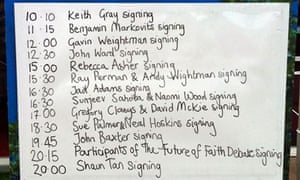 10.10 Keith Gray signing
11.15 Benjamin Markovits signing
12.00 Gavin Weightman signing
12.30 John Ward signing
15.00 Rebecca Asher signing
15.30 Ray Perman & Andy Wightman signing
16.30 Jad Adams signing
16.30 Sunjeev Sahota & Naomi Wood signing
17.00 Gregory Claeys & David McKie signing
18.30 Sue Palmer & Neil Hoskins signing
19.45 John Baxter signing
20.15 Participants of The Future of Faith Debate Signing
20.00 Shaun Tan Signing